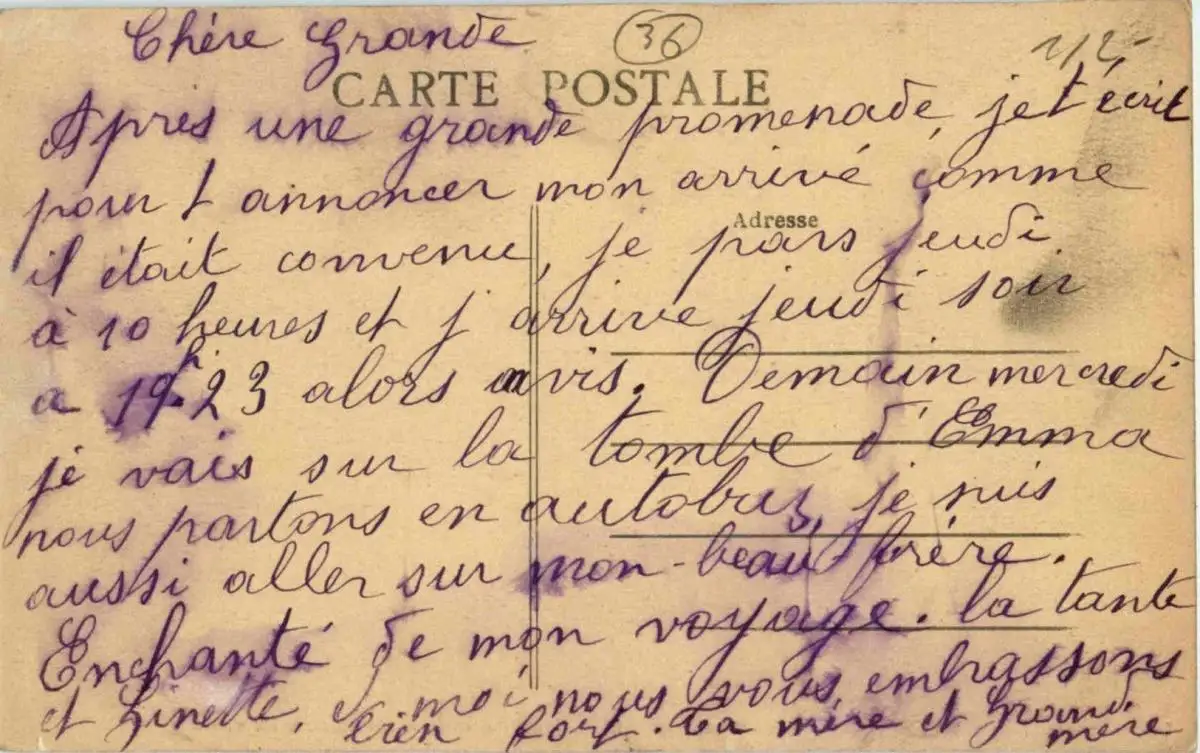 Chère Grande
36
CARTE POSTALE
Après une grande promenade, je t'écrit
pour t annoncer mon arrivé comme
Adresse
il était convenu, je pars jeudi
à 10 heures et j arrive jeudi soir
a 19h23 alors avis. Demain mercredi
je vais sur la tombe d'Emma
nous partons en autobus, je suis
aussi aller sur mon-beau frère.
Enchanté de mon voyage. la tante
et Ginette, et moi nous vous embrassons
bien fort. Ta mère et Grand
mère